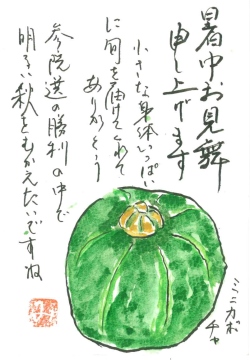 暑中お見舞
申し上げます
小さな身体いっぱい
に旬を届けてくれて
ありがとう
参院選の勝利の中で
明るい秋をむかえたいですね
ミニカボ
チャ